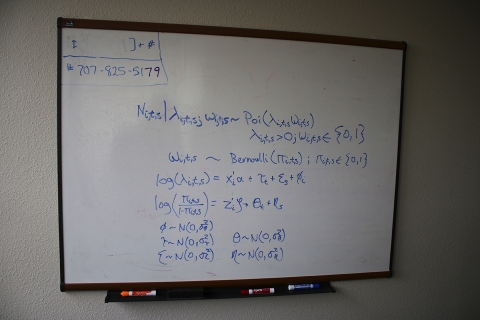 I ]+#
* 707-825-5179
N_{i,t,s} | λ_{i,t,s}, w_{i,t,s} ~ Poi(λ_{i,t,s} w_{i,t,s})
λ_{i,t,s} > 0, w_{i,t,s} ∈ {0,1}
w_{i,t,s} ~ Bernoulli(π_{i,t,s}); π_{i,t,s} ∈ {0,1}
log(λ_{i,t,s}) = x_i'α + τ_t + ξ_s + ϕ_i
log(π_{i,t,s}/(1-π_{i,t,s})) = z_i'ζ + θ_t + η_s
ϕ ~ N(0,σ²)
τ ~ N(0,σ²) θ ~ N(0,σ²)
ξ ~ N(0,σ²) η ~ N(0,σ²)